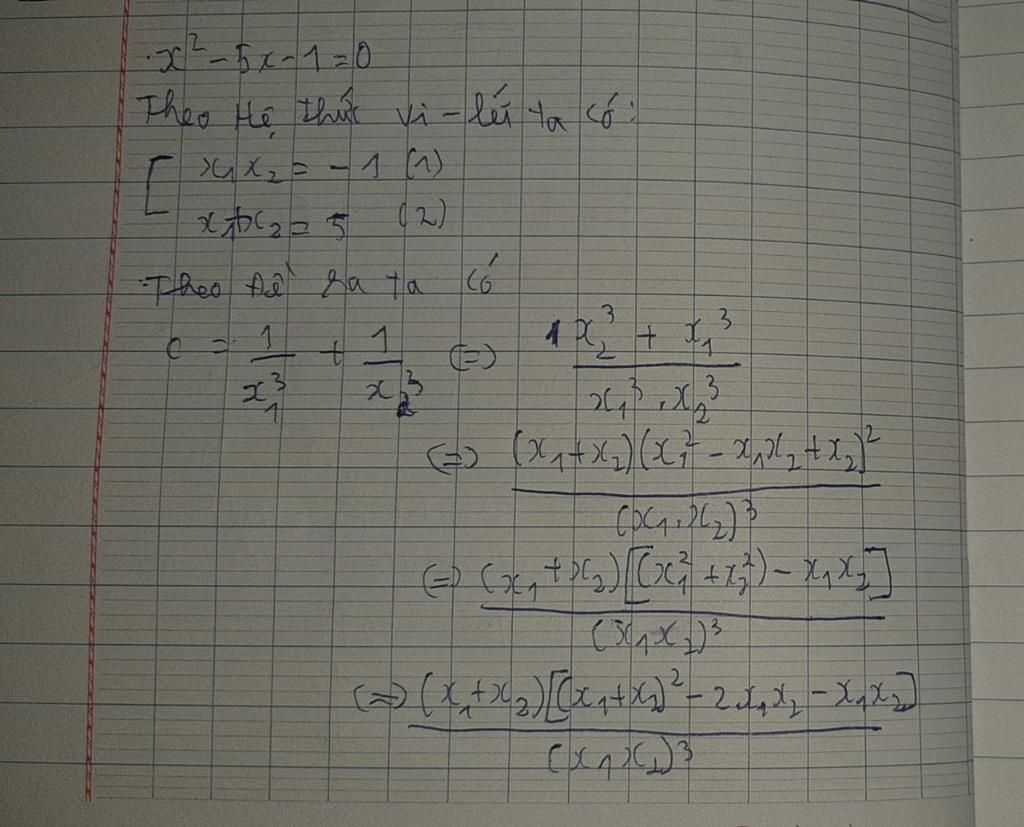 x² - 5x - 1 = 0
Theo Hệ thức Vi - lét ta có:
[ x₁x₂ = - 1 (1)
x₁+x₂ = 5 (2)
Theo Đề ra ta có
C = 1/x₁³ + 1/x₂³ (=) (x₂³ + x₁³)/(x₁³ . x₂³)
(=) (x₁+x₂)(x₁² - x₁x₂ + x₂)²/(x₁.x₂)³
(=) (x₁+x₂)[(x₁² + x₂²) - x₁x₂]/(x₁x₂)³
(=) (x₁+x₂)[(x₁+x₂)² - 2x₁x₂ - x₁x₂]/(x₁x₂)³